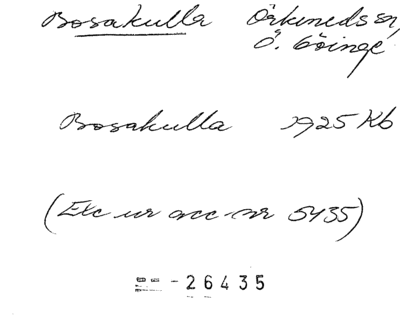 Bosakulla Örkeneds sn,
Ö. Göinge
Bosakulla 1925 Kb
(Exc ur acc nr 5435)
-26435